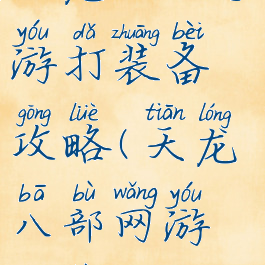 yóu dǎ zhuāng bèi
游打装备
gōng lüè tiān lóng
攻略(天龙
bā bù wǎng yóu
八部网游